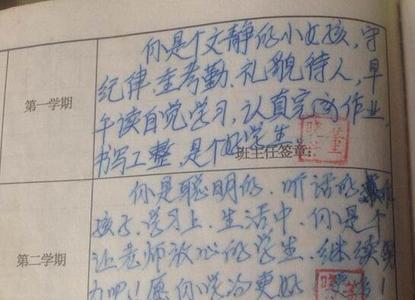 你是个文静的小女孩,守
纪律,重考勤,礼貌待人,早
第一学期
午读自觉学习,认真完成作业,
书写工整,是个好学生
班主任签章:
你是聪明的,听话的
孩子,学习上,生活中,你是个
让老师放心的学生,继续
第二学期
力吧!愿你学习更好